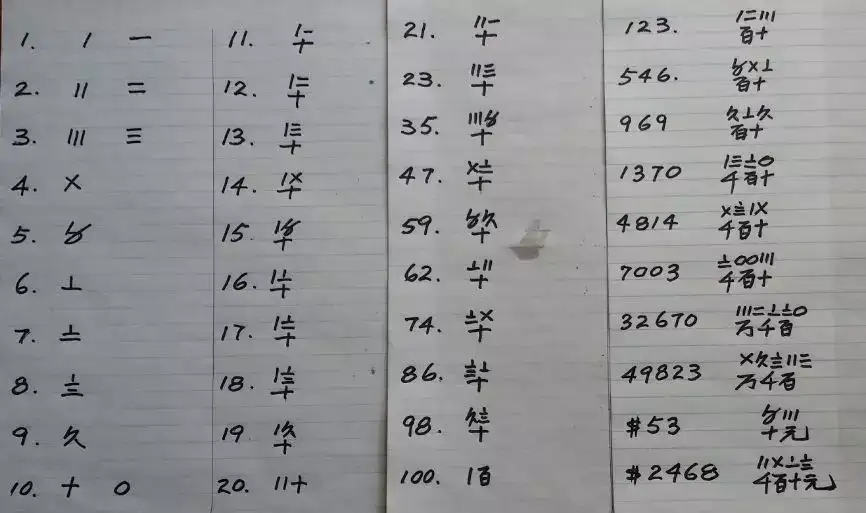 1. 〡 一
2. 〢 二
3. 〣 三
4. 〤
5. 〥
6. 〦
7. 〧
8. 〨
9. 〩
10. 十 〇
11. 〡一
十
12. 〡二
十
13. 〡三
十
14. 〡〤
十
15. 〡〥
十
16. 〡〦
十
17. 〡〧
十
18. 〡〨
十
19 〡〩
十
20. 〢十
21. 〢一
十
23. 〢三
十
35. 〣〥
十
47. 〤〧
十
59. 〥〩
十
62. 〦〢
十
74. 〧〤
十
86. 〨〦
十
98. 〩〨
十
100. 〡百
123. 〡二〣
百十
546. 〥〤〦
百十
969 〩〦〩
百十
1370 〡三〧〇
千百十
4814 〤〨〡〤
千百十
7003 〧〇〇〣
千百十
32670 〣二〦〧〇
万千百
49823 〤〩〨〢三
万千百
$53 〥〣
十元
$2468 〢〤〦〨
千百十元